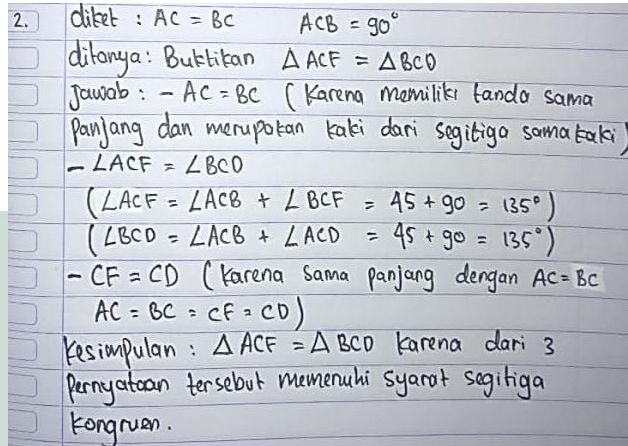 2. diket : AC = BC ACB = 90°
ditanya : Buktikan △ ACF = △ BCD
Jawab : - AC = BC ( Karena memiliki tanda sama
Panjang dan merupakan kaki dari segitiga sama kaki)
- ∠ACF = ∠BCD
(∠ACF = ∠ACB + ∠BCF = 45 + 90 = 135°)
(∠BCD = ∠ACB + ∠ACD = 45 + 90 = 135°)
- CF = CD ( Karena Sama panjang dengan AC = BC
AC = BC = CF = CD)
Kesimpulan : △ ACF = △ BCD Karena dari 3
Pernyataan tersebut memenuhi syarat segitiga
kongruen.